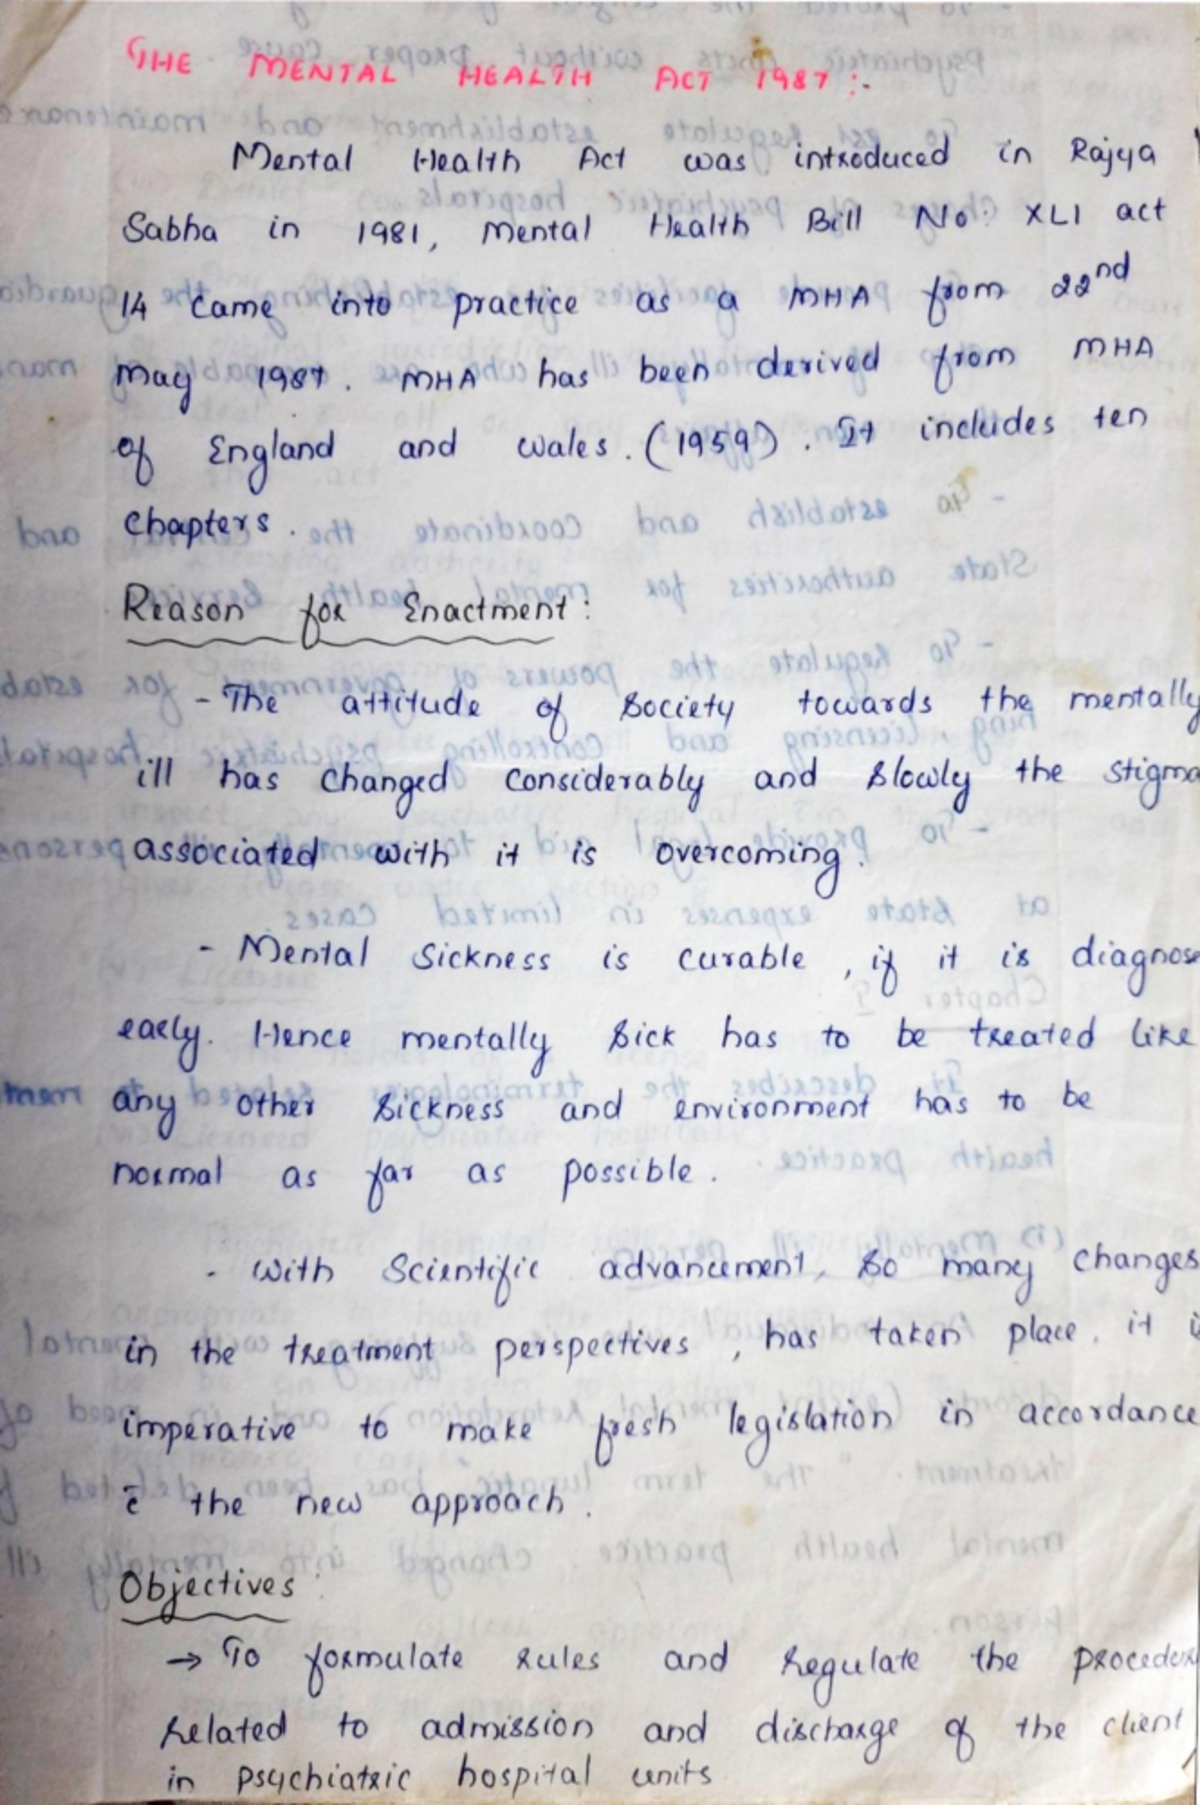 THE MENTAL HEALTH ACT 1987 :-
Mental Health Act was introduced in Rajya
Sabha in 1981, Mental Health Bill No: XLI act
14 came into practice as a MHA from 22nd
May 1987. MHA has been derived from MHA
of England and Wales. (1959). It includes ten
chapters.
Reason for Enactment:
- The attitude of society towards the mentally
ill has changed considerably and slowly the stigma
associated with it is overcoming.
- Mental Sickness is curable, if it is diagnose
early. Hence mentally sick has to be treated like
any other sickness and environment has to be
normal as far as possible.
- With Scientific advancement, so many changes
in the treatment perspectives, has taken place. it i
imperative to make fresh legislation in accordance
c̄ the new approach.
Objectives:
→ To formulate rules and regulate the procedur
related to admission and discharge of the client
in psychiatric hospital units